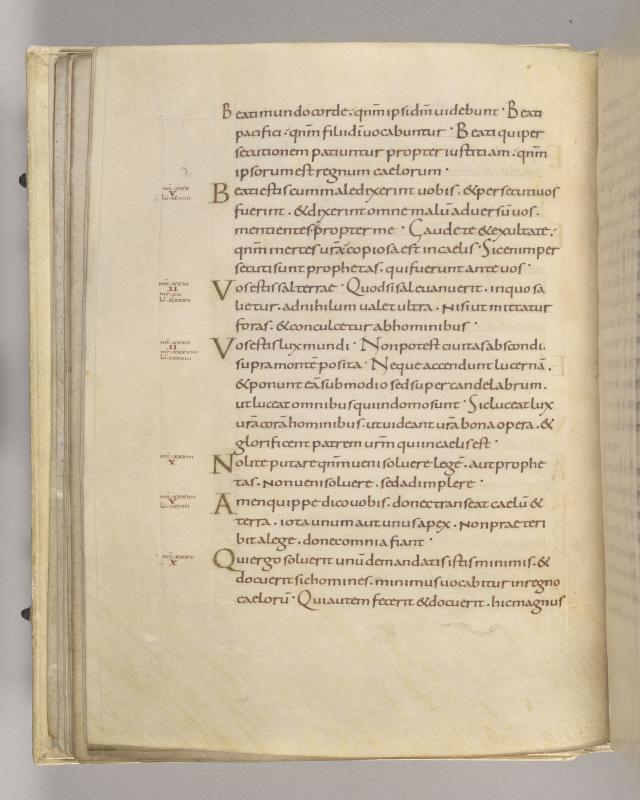 Beati mundo corde · qnm ipsi dm uidebunt · Beati
pacifici · qnm filii di uocabuntur · Beati qui per
secutionem patiuntur propter iustitiam · qnm
ipsorum est regnum caelorum ·
mt. xxx
V
Beati estis cum maledixerint uobis · & persecuti uos
fuerint · & dixerint omne malū aduersū uos ·
mentientes propter me · Gaudete & exultate ·
qnm merces ura copiosa est in caelis · Sic enim per
secuti sunt prophetas · qui fuerunt ante uos ·
mt. xxxi
II
Vos estis sal terrae · Quod si sal euanuerit · in quo sa
lietur · ad nihilum ualet ultra · nisi ut mittatur
foras · & conculcetur ab hominibus ·
mt. xxxii
II
Vos estis lux mundi · Non potest ciuitas abscondi
supra montē posita · Neque accendunt lucernā ·
& ponunt eā sub modio sed super candelabrum ·
ut luceat omnibus qui in domo sunt · Sic luceat lux
ura corā hominibus · ut uideant ura bona opera · &
glorificent patrem urm qui in caelis est ·
mt. xxxiii
X
Nolite putare qnm ueni soluere legē · aut prophe
tas · Non ueni soluere · sed adimplere ·
mt. xxxiiii
V
Amen quippe dico uobis · donec transeat caelū &
terra · iota unum aut unus apex · non praeteri
bit a lege · donec omnia fiant ·
mt. xxxv
X
Qui ergo soluerit unū de mandatis istis minimis · &
docuerit sic homines · minimus uocabitur in regno
caelorū · Qui autem fecerit & docuerit · hic magnus